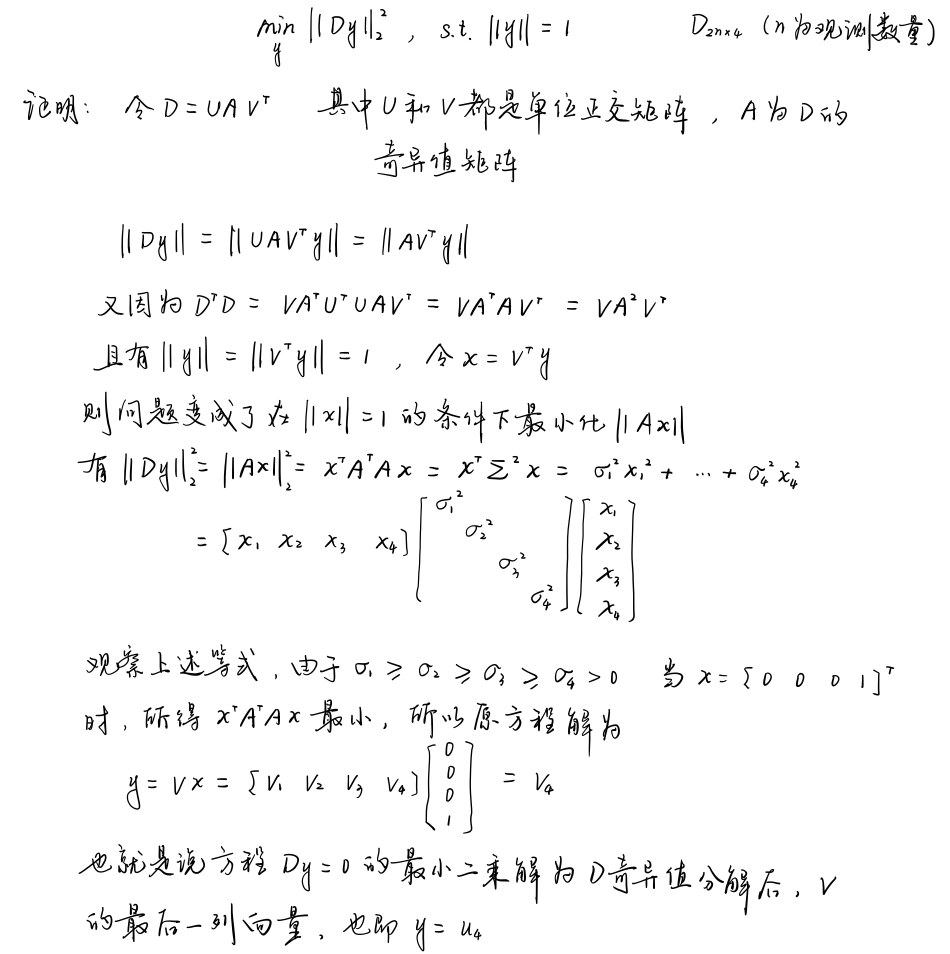 min_y ||Dy||₂² , s.t. ||y|| = 1 D₂ₙₓ₄ (n为观测数量)
证明: 令 D = UAVᵀ 其中U和V都是单位正交矩阵, A为D的
奇异值矩阵
||Dy|| = ||UAVᵀy|| = ||AVᵀy||
又因为 DᵀD = VAᵀUᵀUAVᵀ = VAᵀAVᵀ = VA²Vᵀ
且有 ||y|| = ||Vᵀy|| = 1 , 令 x = Vᵀy
则问题变成了在 ||x|| = 1 的条件下最小化 ||Ax||
有 ||Dy||₂² = ||Ax||₂² = xᵀAᵀAx = xᵀΣ²x = σ₁²x₁² + … + σ₄²x₄²
= [x₁ x₂ x₃ x₄] [σ₁² σ₂² σ₃² σ₄²] [x₁ x₂ x₃ x₄]
观察上述等式, 由于 σ₁ ≥ σ₂ ≥ σ₃ ≥ σ₄ > 0 当 x = [0 0 0 1]ᵀ
时, 所得 xᵀAᵀAx 最小, 所以原方程解为
y = Vx = [V₁ V₂ V₃ V₄] [0 0 0 1] = V₄
也就是说方程 Dy = 0 的最小二乘解为D奇异值分解后, V
的最后一列向量, 也即 y = u₄